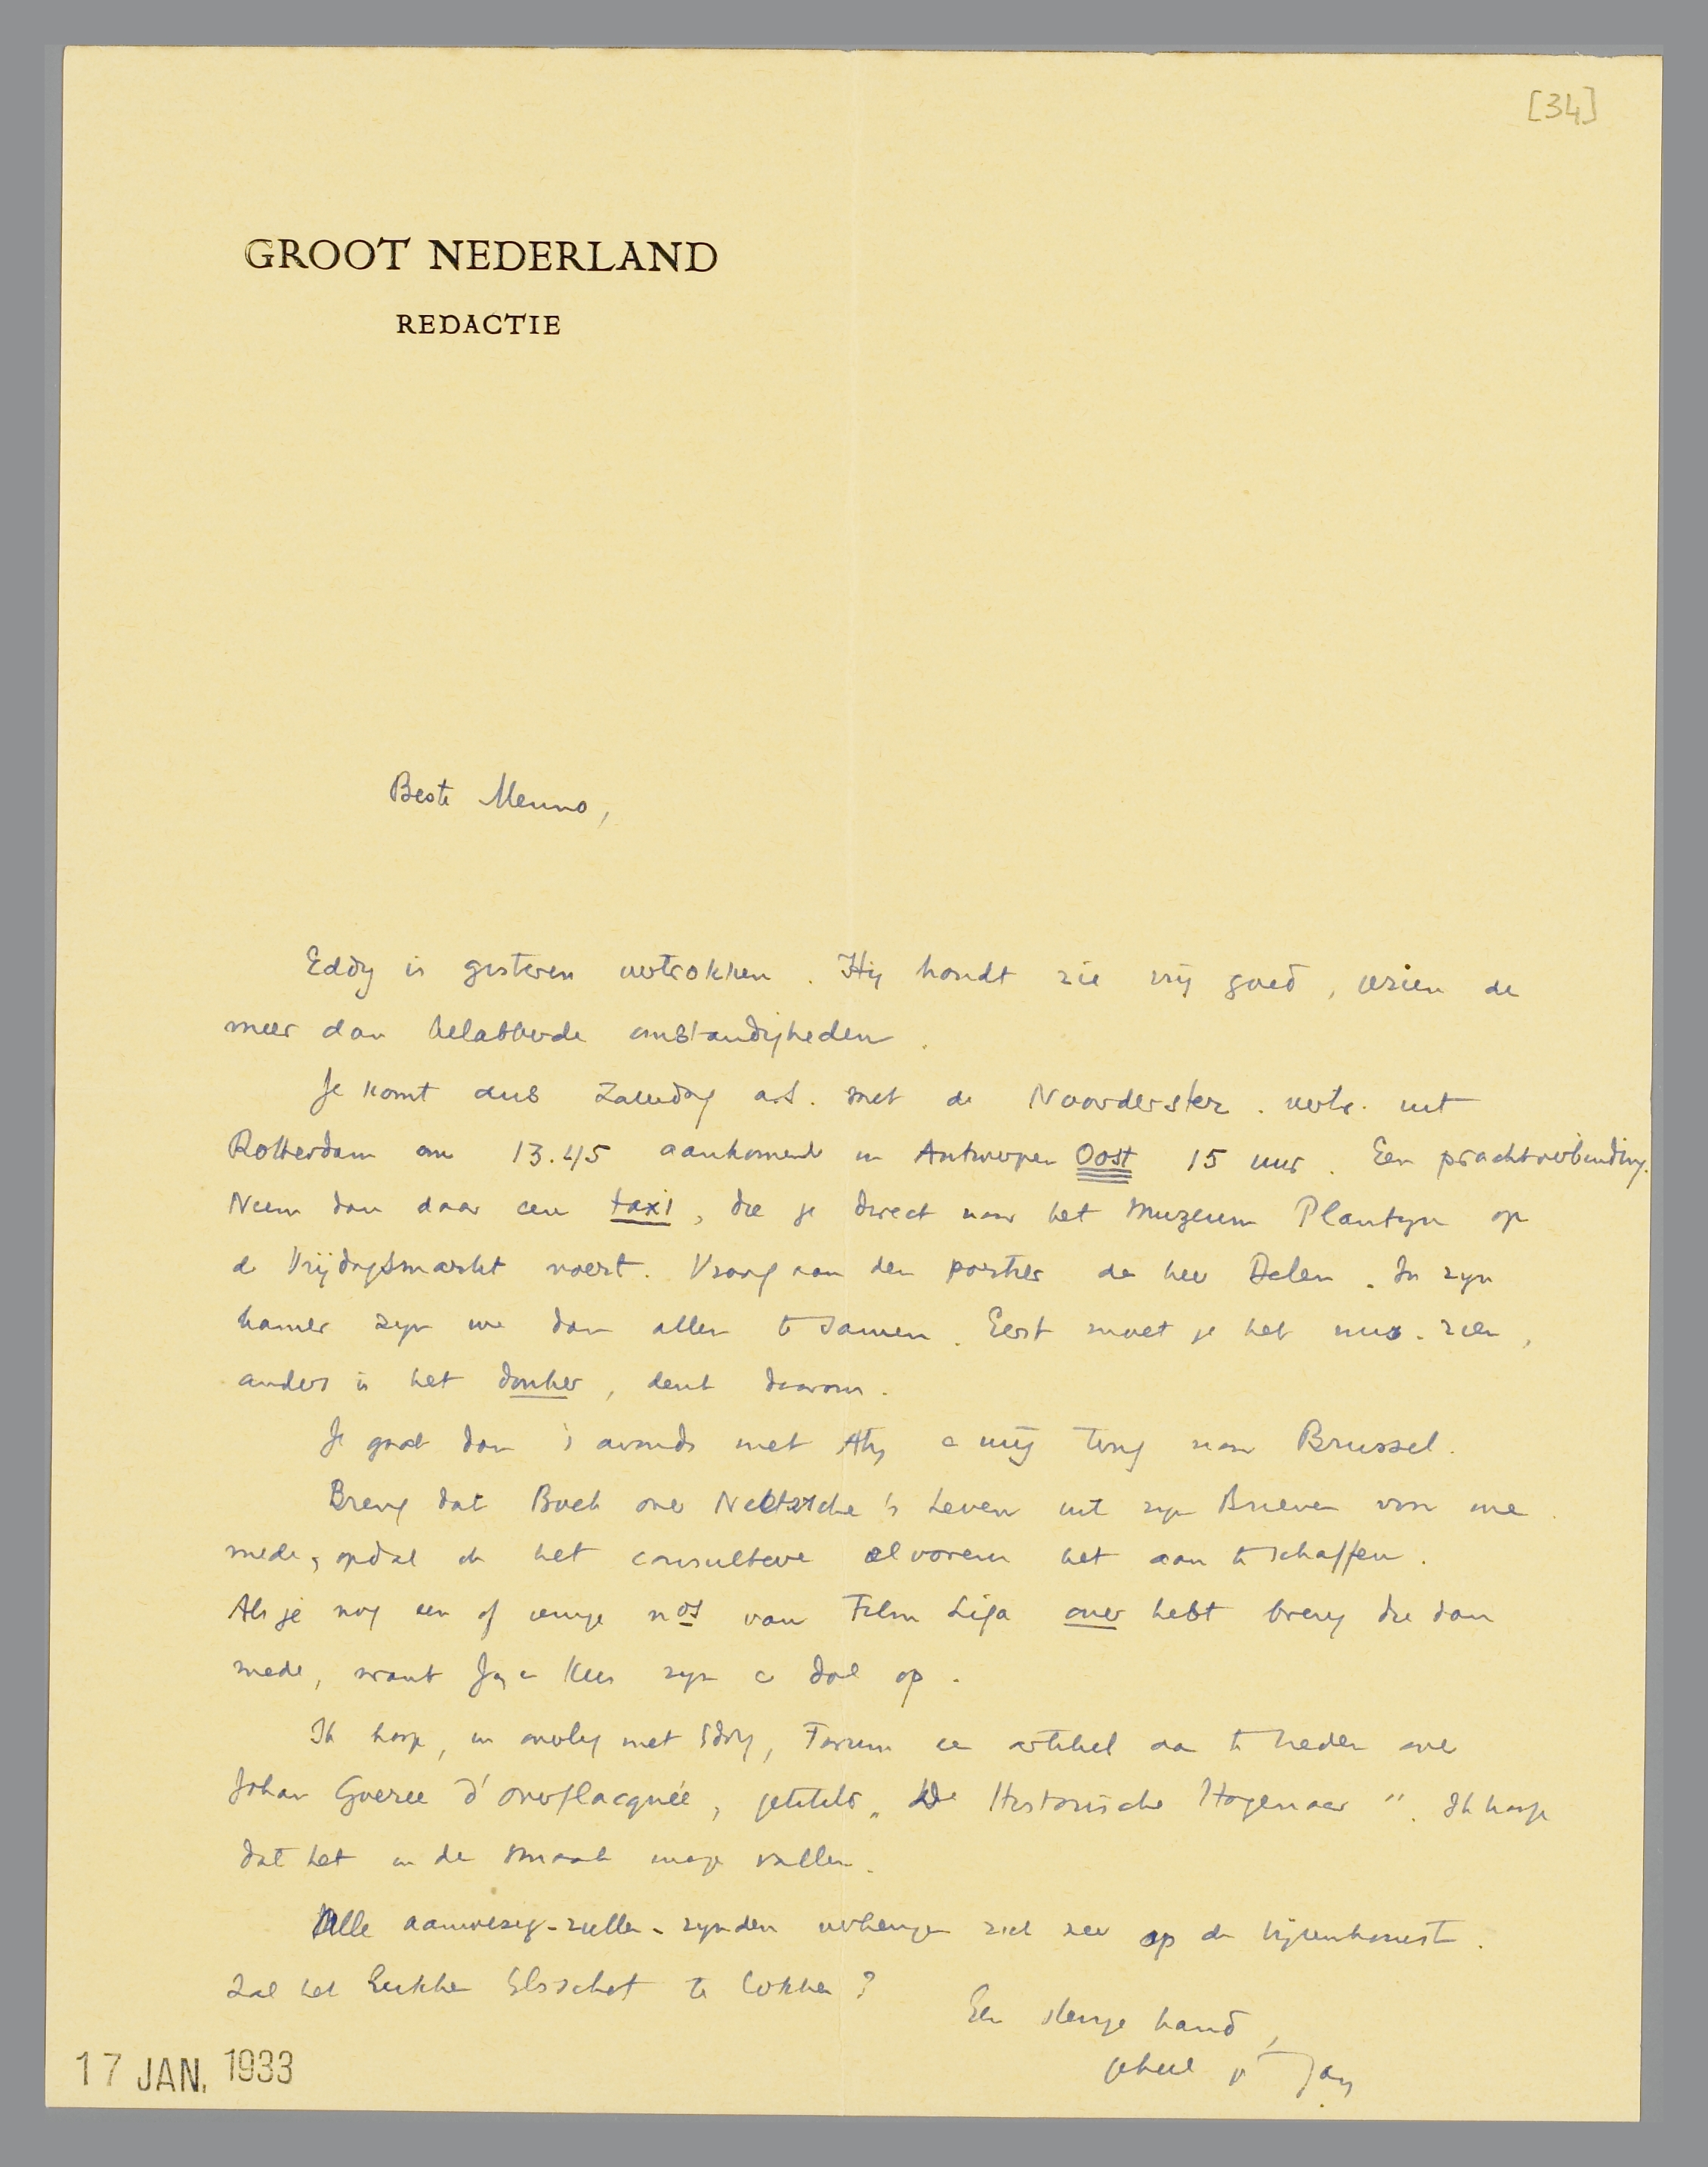 [34]
GROOT NEDERLAND
REDACTIE
Beste Menno,
Eddy is gisteren vertrokken. Hij houdt zie vrij goed, gezien de
meer dan belabberde omstandigheden.
Je komt dus Zaterdag a.s. met de Noorderster. vertr. uit
Rotterdam om 13.45 aankomende in Antwerpen Oost 15 uur. Een prachtverbinding.
Neem dan daar een taxi, die je direct naar het Muzeum Plantyn op
de Vrijdagsmarkt voert. Vraag aan den portier de heer Delen. In zyn
kamer zyn we dan allen te samen. Eerst moet je het mus. zien,
anders is het donker, denk daarom.
Je gaat dan 's avonds met Aty en mij terug naar Brussel.
Breng dat Boek over Nietzsche's Leven uit zyn Brieven voor me
mede, opdat ik het consulteere alvorens het aan te schaffen.
Als je nog een of eenige nos van Film Liga over hebt breng die dan
mede, want Jan en Kees zyn er dol op.
Ik hoop, in overleg met Eddy, Forum een artikel aan te bieden over
Johan Goeree d'Overflacquée, getiteld „De Historische Hagenaar". Ik hoop
dat het in de smaak moge vallen.
Alle aanwezig-zullen-zynden verheugen zich zeer op de bijeenkomst.
Zal het lukken Elsschot te lokken?
Een stevige hand,
geheel je Jan
17 JAN. 1933